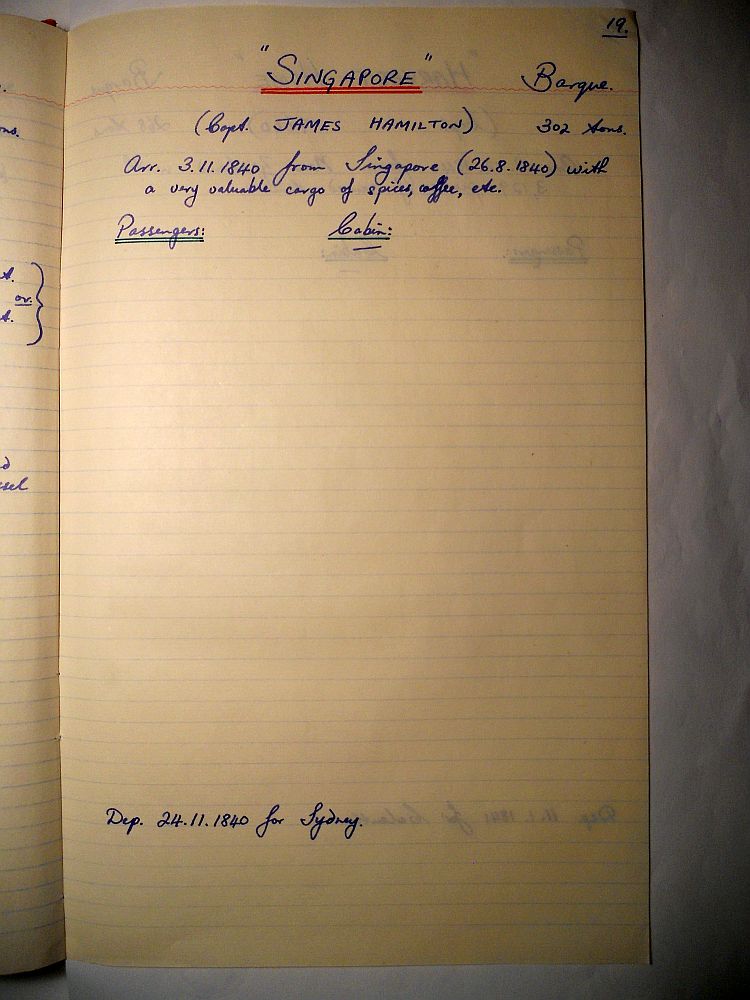 19.
"SINGAPORE" Barque.
(Capt. JAMES HAMILTON) 302 tons.
Arr. 3.11.1840 from Singapore (26.8.1840) with
a very valuable cargo of spices, coffee, etc.
Passengers: Cabin:
Dep. 24.11.1840 for Sydney.